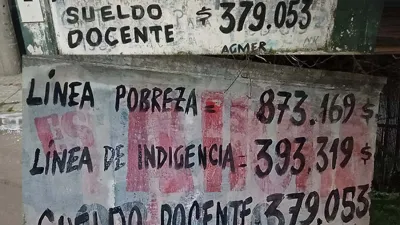 SUELDO $379.053
DOCENTE
AGMER
LÍNEA POBREZA = 873.169$
LÍNEA DE INDIGENCIA = 393.319$
SUELDO DOCENTE 379.053